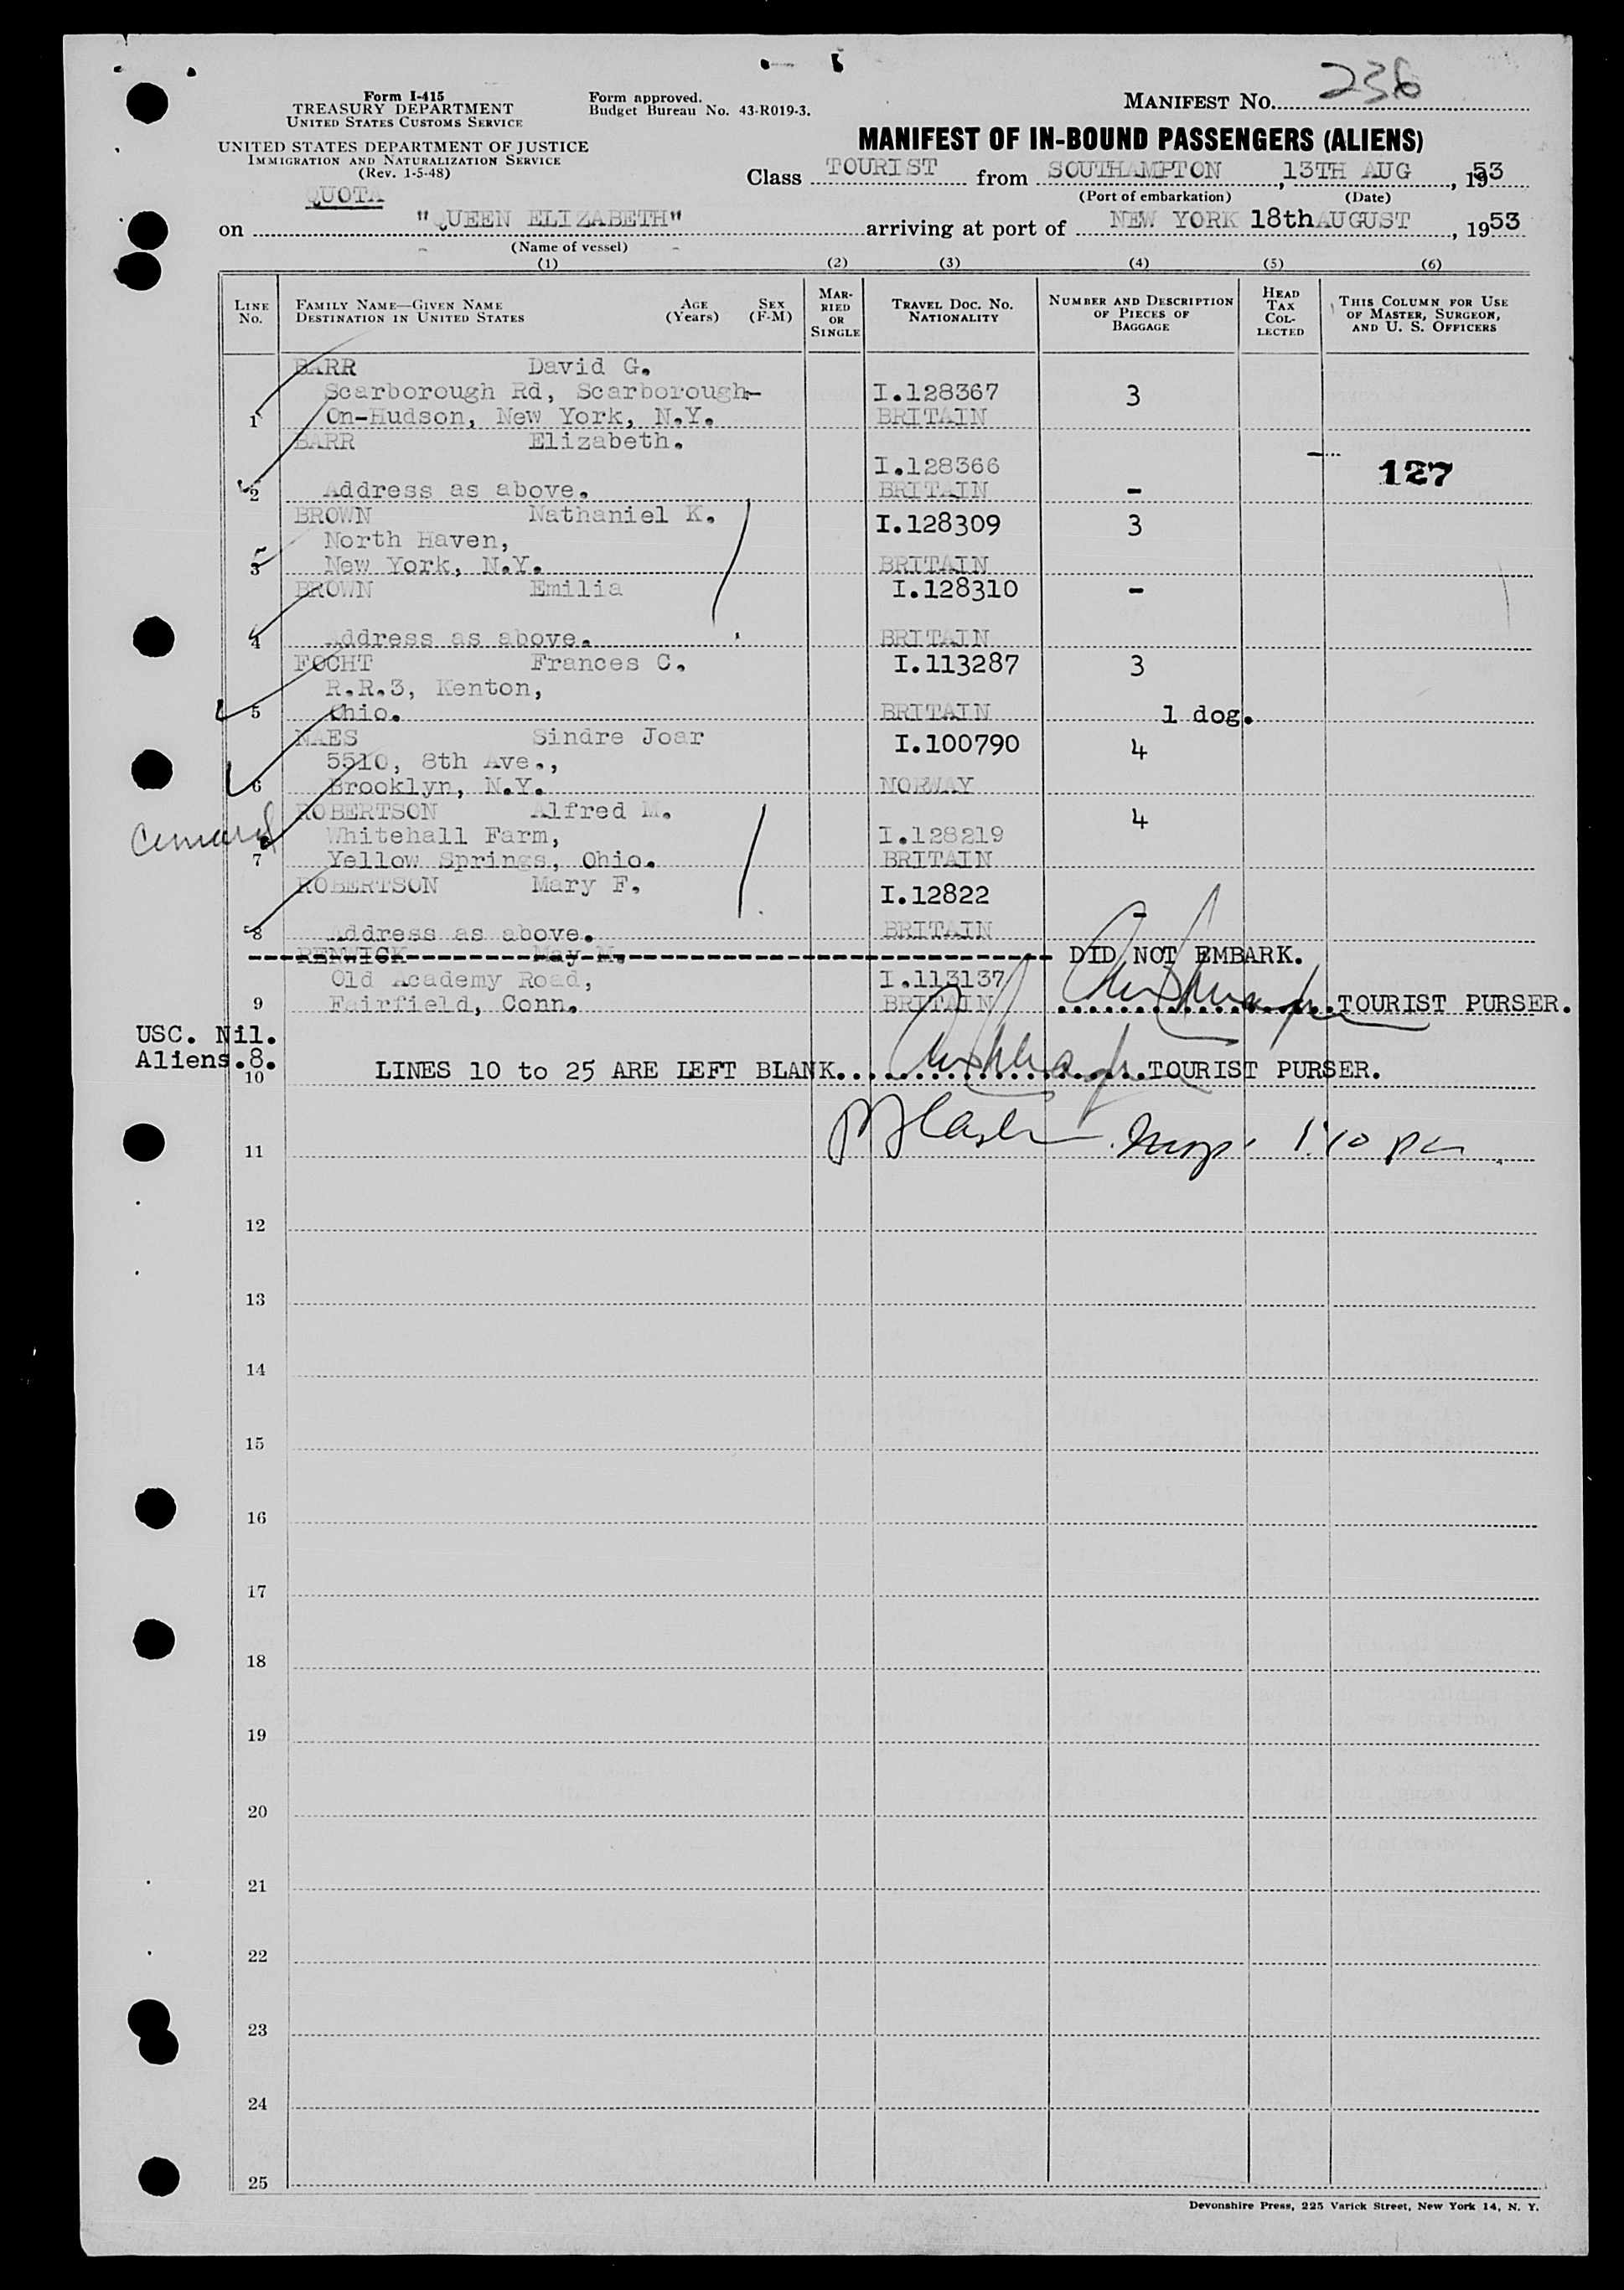 236
Form I-415
TREASURY DEPARTMENT
UNITED STATES CUSTOMS SERVICE
Form approved.
Budget Bureau No. 43-R019-3.
MANIFEST NO.
UNITED STATES DEPARTMENT OF JUSTICE
IMMIGRATION AND NATURALIZATION SERVICE
(Rev. 1-5-48)
MANIFEST OF IN-BOUND PASSENGERS (ALIENS)
QUOTA
Class TOURIST from SOUTHAMPTON, 13TH AUG, 1953
(Port of embarkation) (Date)
on "QUEEN ELIZABETH" arriving at port of NEW YORK 18th AUGUST, 1953
(Name of vessel)
(1) (2) (3) (4) (5) (6)
LINE NO.
FAMILY NAME—GIVEN NAME
DESTINATION IN UNITED STATES
AGE (Years)
SEX (F-M)
MARRIED OR SINGLE
TRAVEL DOC. NO.
NATIONALITY
NUMBER AND DESCRIPTION OF PIECES OF BAGGAGE
HEAD TAX COLLECTED
THIS COLUMN FOR USE OF MASTER, SURGEON, AND U. S. OFFICERS
BARR David G.
Scarborough Rd, Scarborough- I.128367 3
1 On-Hudson, New York, N.Y. BRITAIN
BARR Elizabeth.
I.128366 127
2 Address as above. BRITAIN -
BROWN Nathaniel K. I.128309 3
North Haven,
3 New York, N.Y. BRITAIN
BROWN Emilia I.128310 -
4 Address as above. BRITAIN
FOCHT Frances C. I.113287 3
R.R.3, Kenton,
5 Ohio. BRITAIN 1 dog.
NAES Sindre Joar I.100790 4
5510, 8th Ave.,
6 Brooklyn, N.Y. NORWAY
ROBERTSON Alfred M. 4
Whitehall Farm, I.128219
7 Yellow Springs, Ohio. BRITAIN
ROBERTSON Mary F. I.12822
8 Address as above. BRITAIN -
RENWICK May M. DID NOT EMBARK.
Old Academy Road, I.113137
9 Fairfield, Conn. BRITAIN TOURIST PURSER.
USC. Nil.
Aliens.8.
10 LINES 10 to 25 ARE LEFT BLANK. TOURIST PURSER.
11 1:10
12
13
14
15
16
17
18
19
20
21
22
23
24
25
Devonshire Press, 225 Varick Street, New York 14, N. Y.